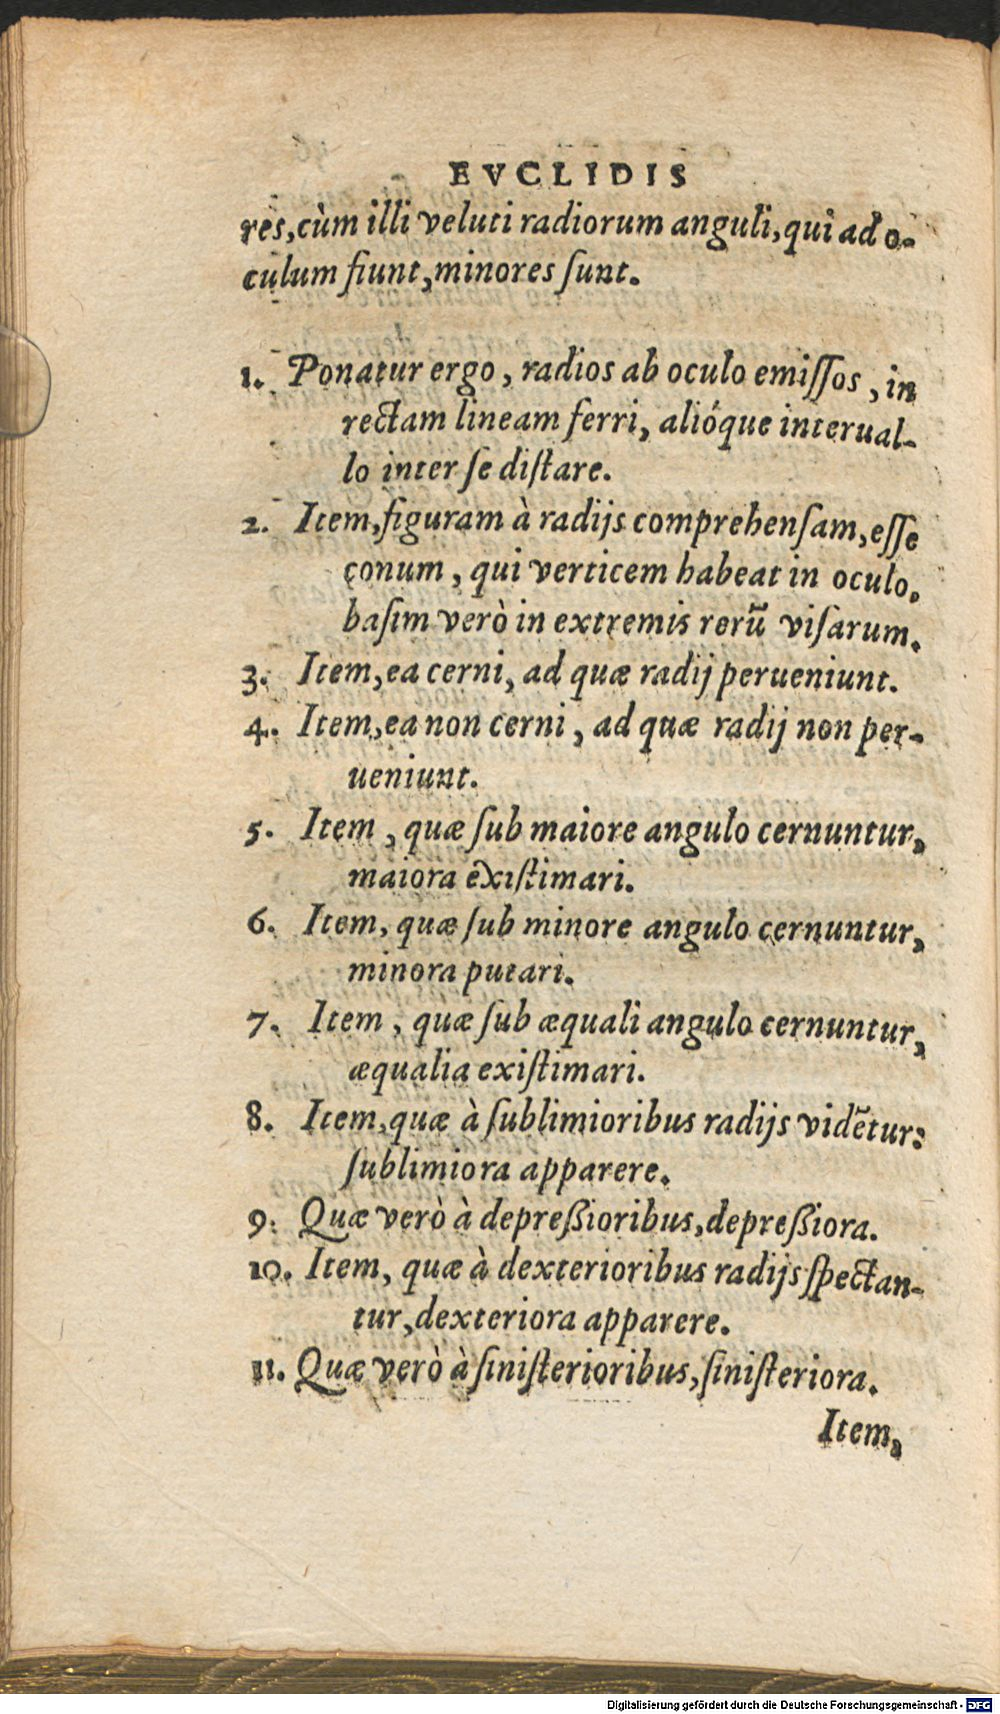 EVCLIDIS
res,cùm illi veluti radiorum anguli,qui ad o-
culum fiunt,minores ſunt.
1. Ponatur ergo, radios ab oculo emiſſos, in
rectam lineam ferri, alióque interual-
lo inter ſe diſtare.
2. Item,figuram à radijs comprehenſam,eſſe
conum, qui verticem habeat in oculo,
baſim verò in extremis rerũ viſarum.
3. Item,ea cerni, ad quæ radij perueniunt.
4. Item,ea non cerni, ad quæ radij non per-
ueniunt.
5. Item, quæ ſub maiore angulo cernuntur,
maiora exiſtimari.
6. Item, quæ ſub minore angulo cernuntur,
minora putari.
7. Item, quæ ſub æquali angulo cernuntur,
æqualia exiſtimari.
8. Item,quæ à ſublimioribus radijs vidētur:
ſublimiora apparere.
9. Quæ verò à depreßioribus,depreßiora.
10. Item, quæ à dexterioribus radijs ſpectan-
tur,dexteriora apparere.
11. Quæ verò à ſiniſterioribus,ſiniſteriora.
Item,
Digitalisierung gefördert durch die Deutsche Forschungsgemeinschaft - DFG